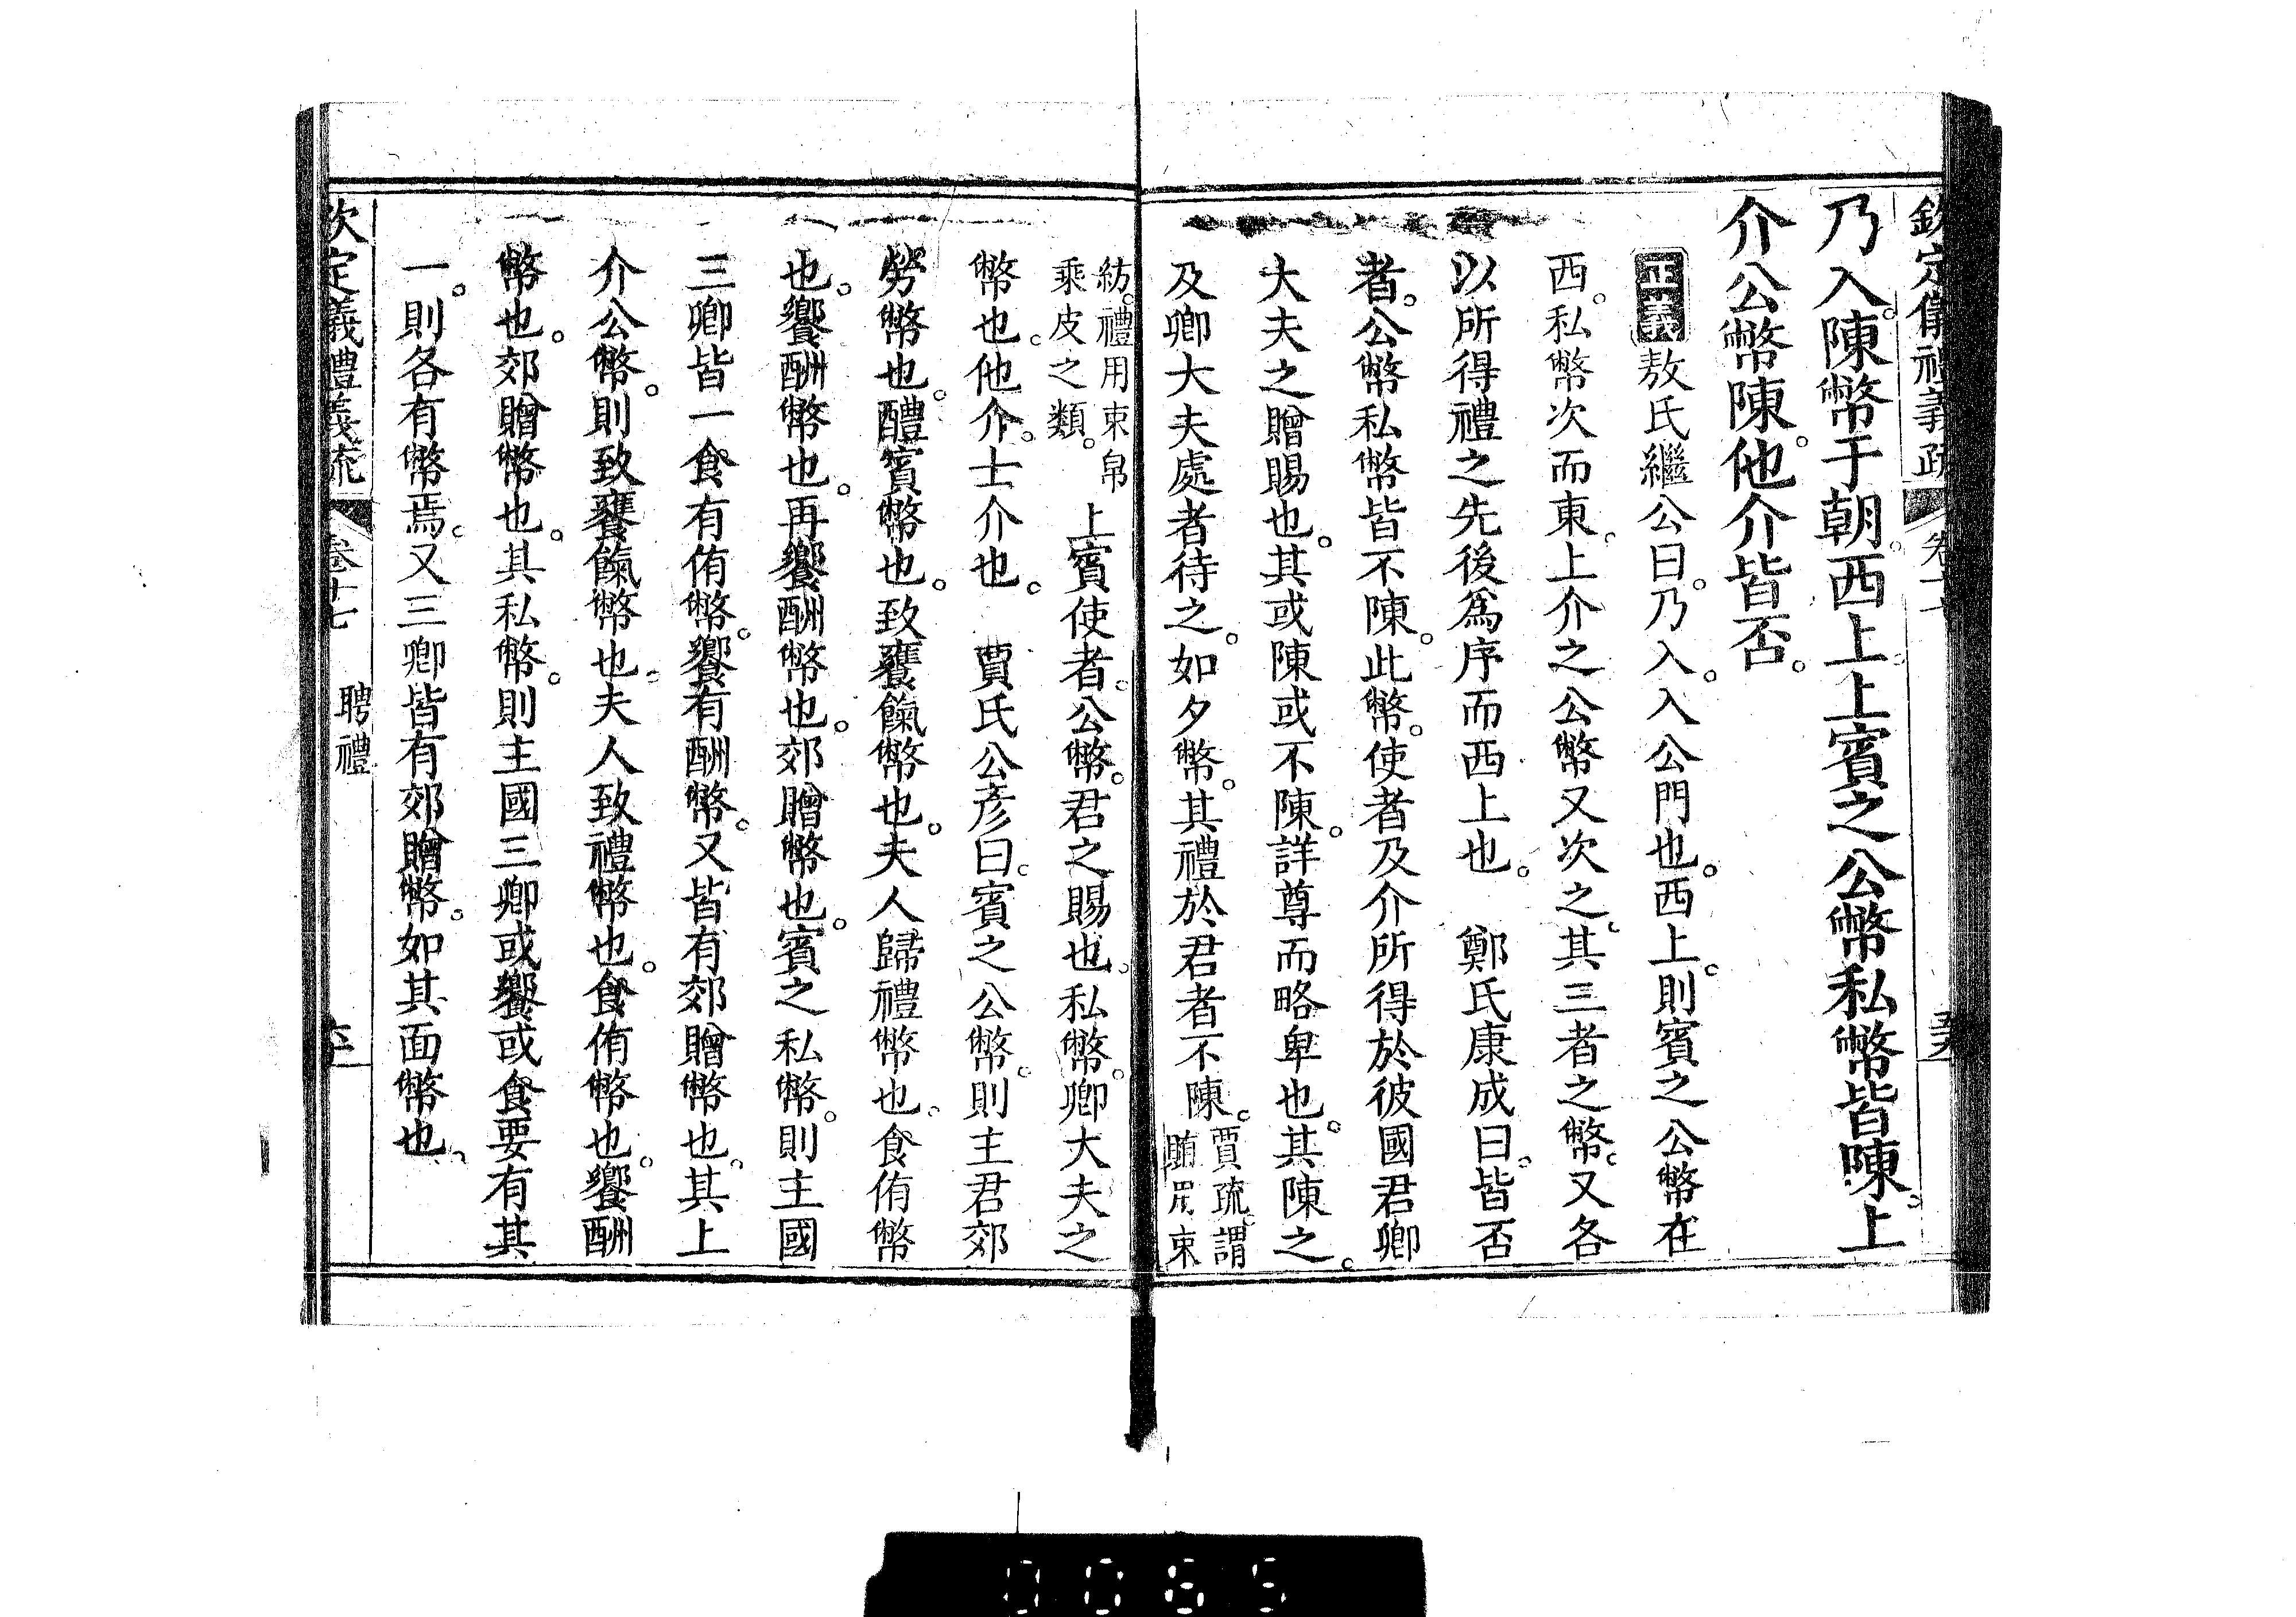 欽定儀禮義疏 卷十
乃入。陳幣于朝。西上。上賓之公幣私幣皆陳。上
介公幣陳。他介皆否。
正義敖氏繼公曰。乃入。入公門也。西上。則賓之公幣在
西。私幣次而東。上介之公幣又次之。其三者之幣。又各
以所得禮之先後為序而西上也。 鄭氏康成曰。皆否
者。公幣私幣皆不陳。此幣。使者及介所得於彼國君卿
大夫之贈賜也。其或陳或不陳。詳尊而略卑也。其陳之。
及卿大夫處者待之。如夕幣。其禮於君者不陳。賈疏。謂
賄用束
紡。禮用束帛
乘皮之類。 上賓使者。公幣。君之賜也。私幣。卿大夫之
幣也。他介。士介也。 賈氏公彥曰。賓之公幣。則主君郊
勞幣也。醴賓幣也。致饔餼幣也。夫人歸禮幣也。食侑幣
也。饗酬幣也。再饗酬幣也。郊贈幣也。賓之私幣。則主國
三卿皆一食有侑幣。饗有酬幣。又皆有郊贈幣也。其上
介公幣。則致饔餼幣也。夫人致禮幣也。食侑幣也。饗酬
幣也。郊贈幣也。其私幣。則主國三卿或饗或食要有其
一。則各有幣焉。又三卿皆有郊贈幣。如其面幣也。
欽定義禮義疏 卷十七 聘禮
0065